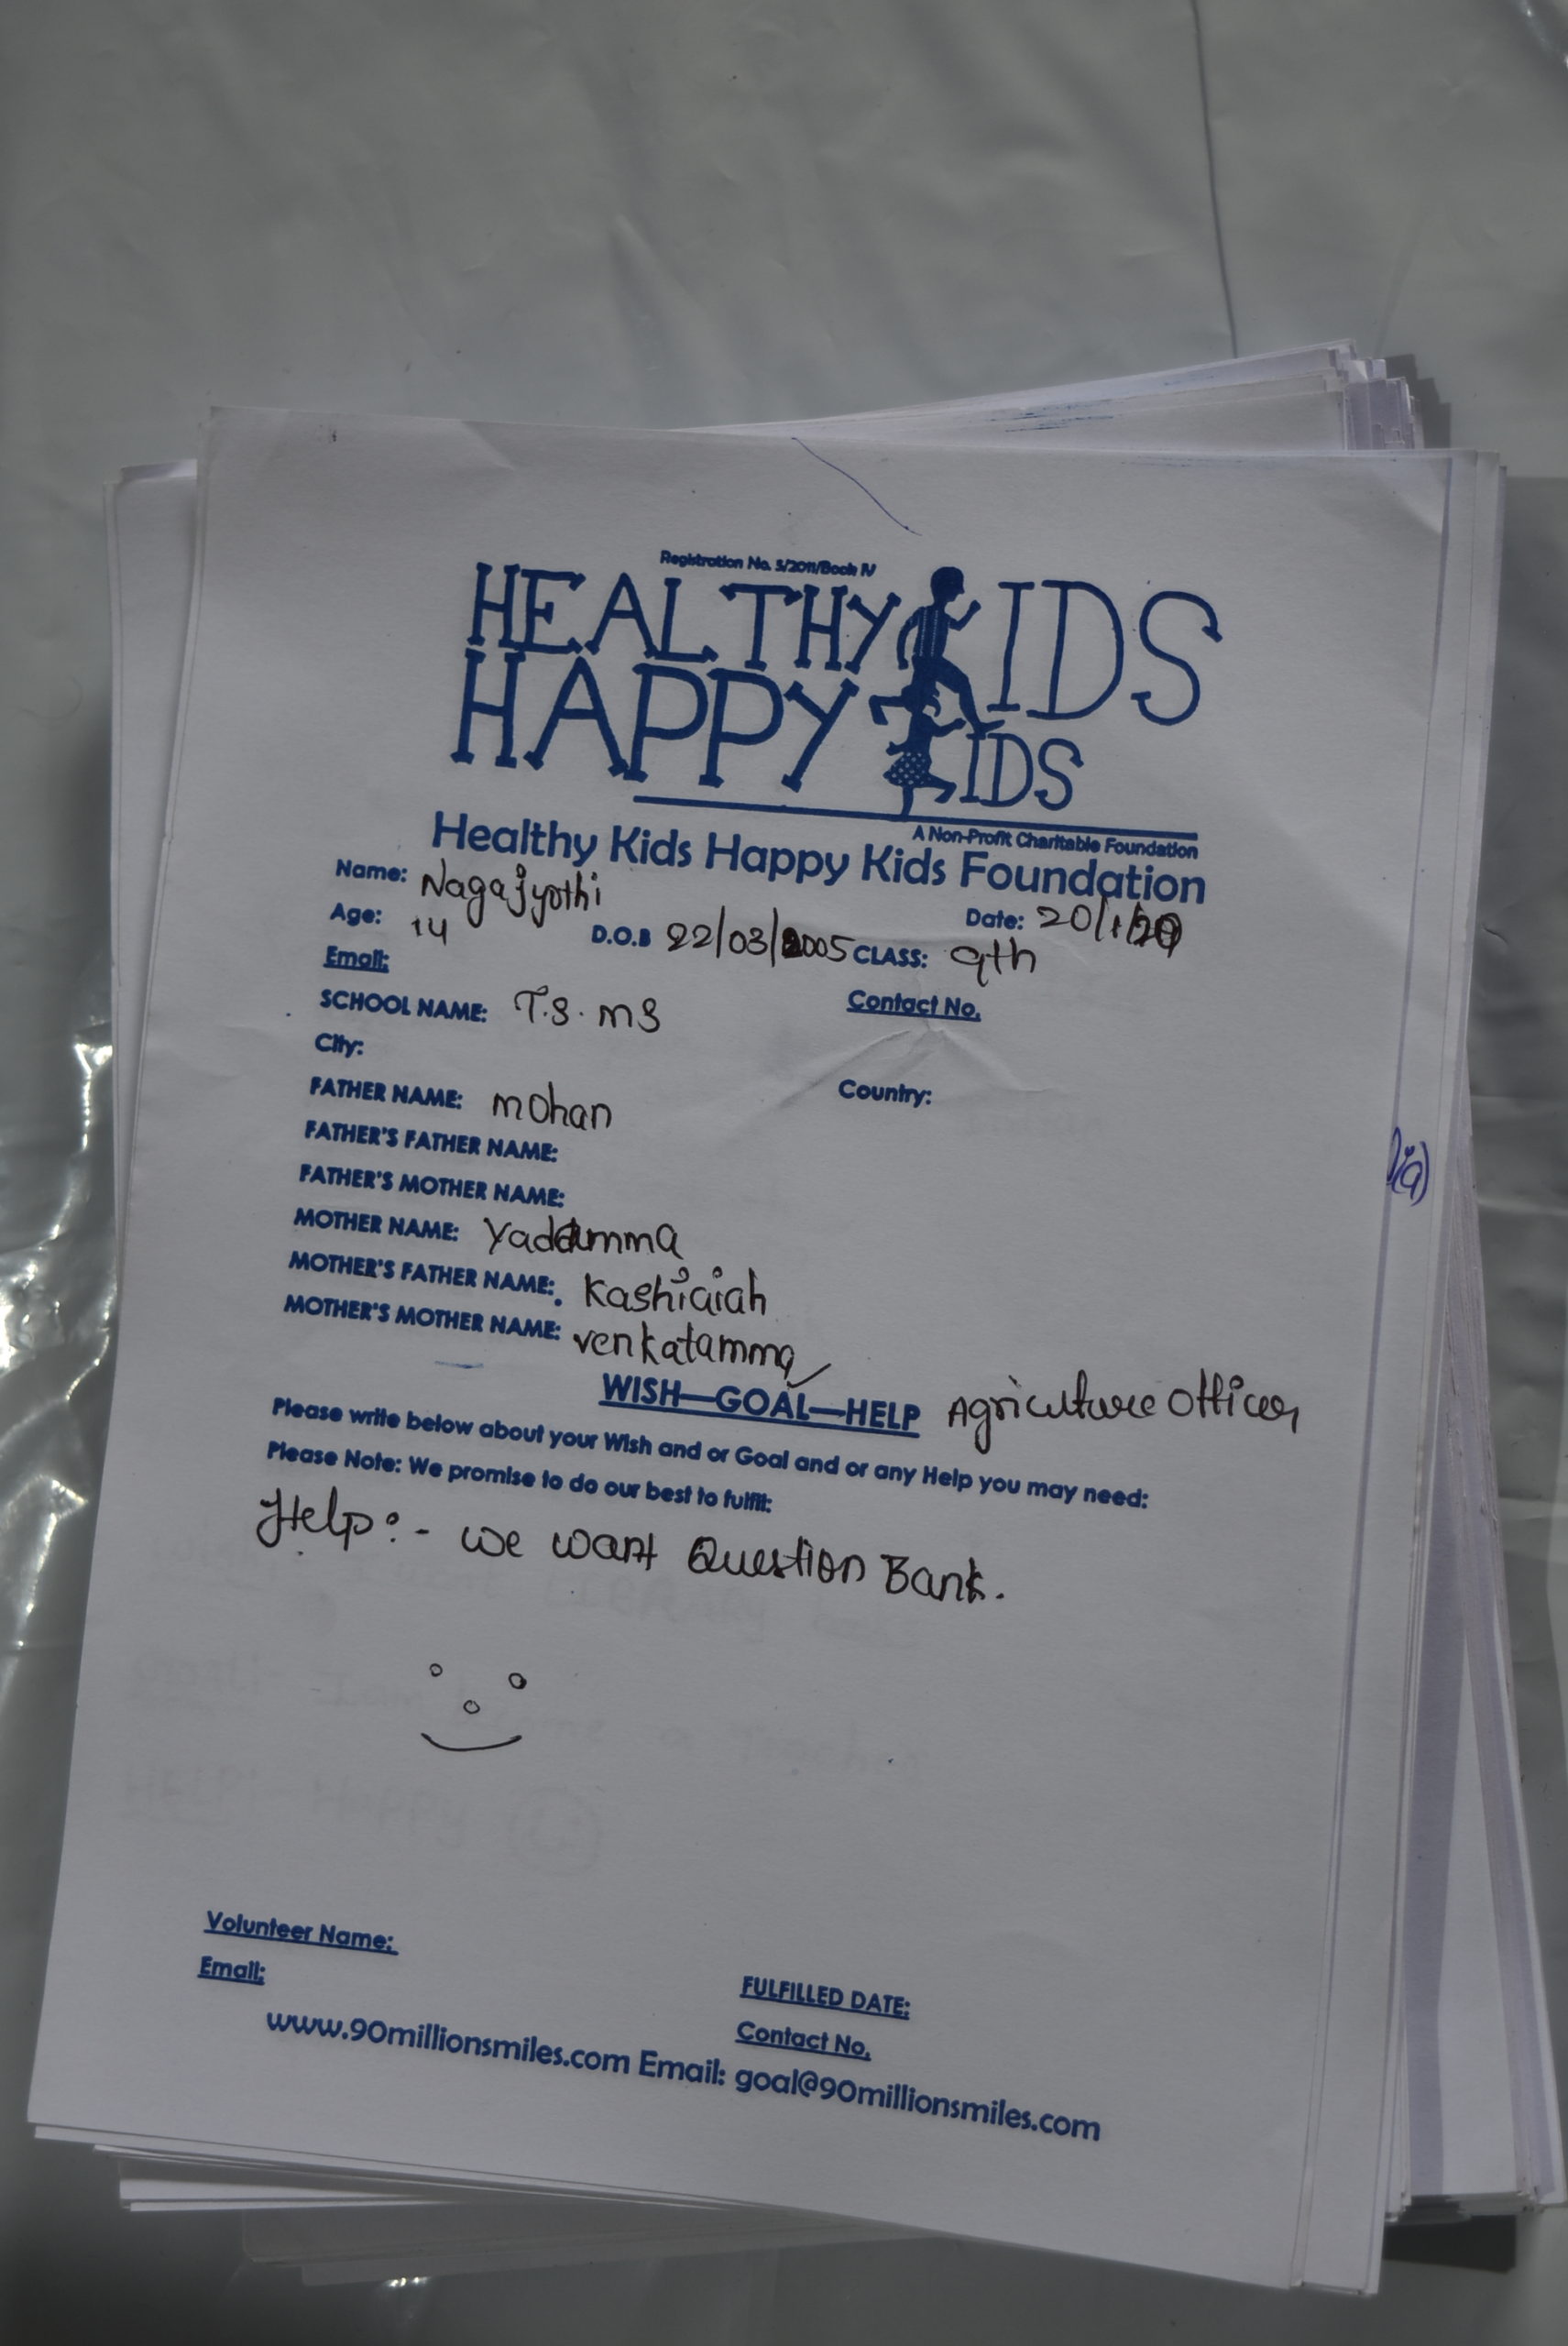 Registration No. 5/2011/Book IV
HEALTHY KIDS
HAPPY KIDS
A Non-Profit Charitable Foundation
Healthy Kids Happy Kids Foundation
Name: Nagajyothi
Date: 20/1/20
Age: 14 D.O.B 22/03/2005 CLASS: 9th
Email:
SCHOOL NAME: T.S. MS Contact No.
City:
Country:
FATHER NAME: Mohan
FATHER'S FATHER NAME:
FATHER'S MOTHER NAME:
MOTHER NAME: Yadamma
MOTHER'S FATHER NAME: Kashiaiah
MOTHER'S MOTHER NAME: venkatamma
WISH—GOAL—HELP Agriculture Officer
Please write below about your Wish and or Goal and or any Help you may need:
Please Note: We promise to do our best to fulfil:
Help:- we want Question Bank.
Volunteer Name:
FULFILLED DATE:
Email:
Contact No.
www.90millionsmiles.com Email: goal@90millionsmiles.com